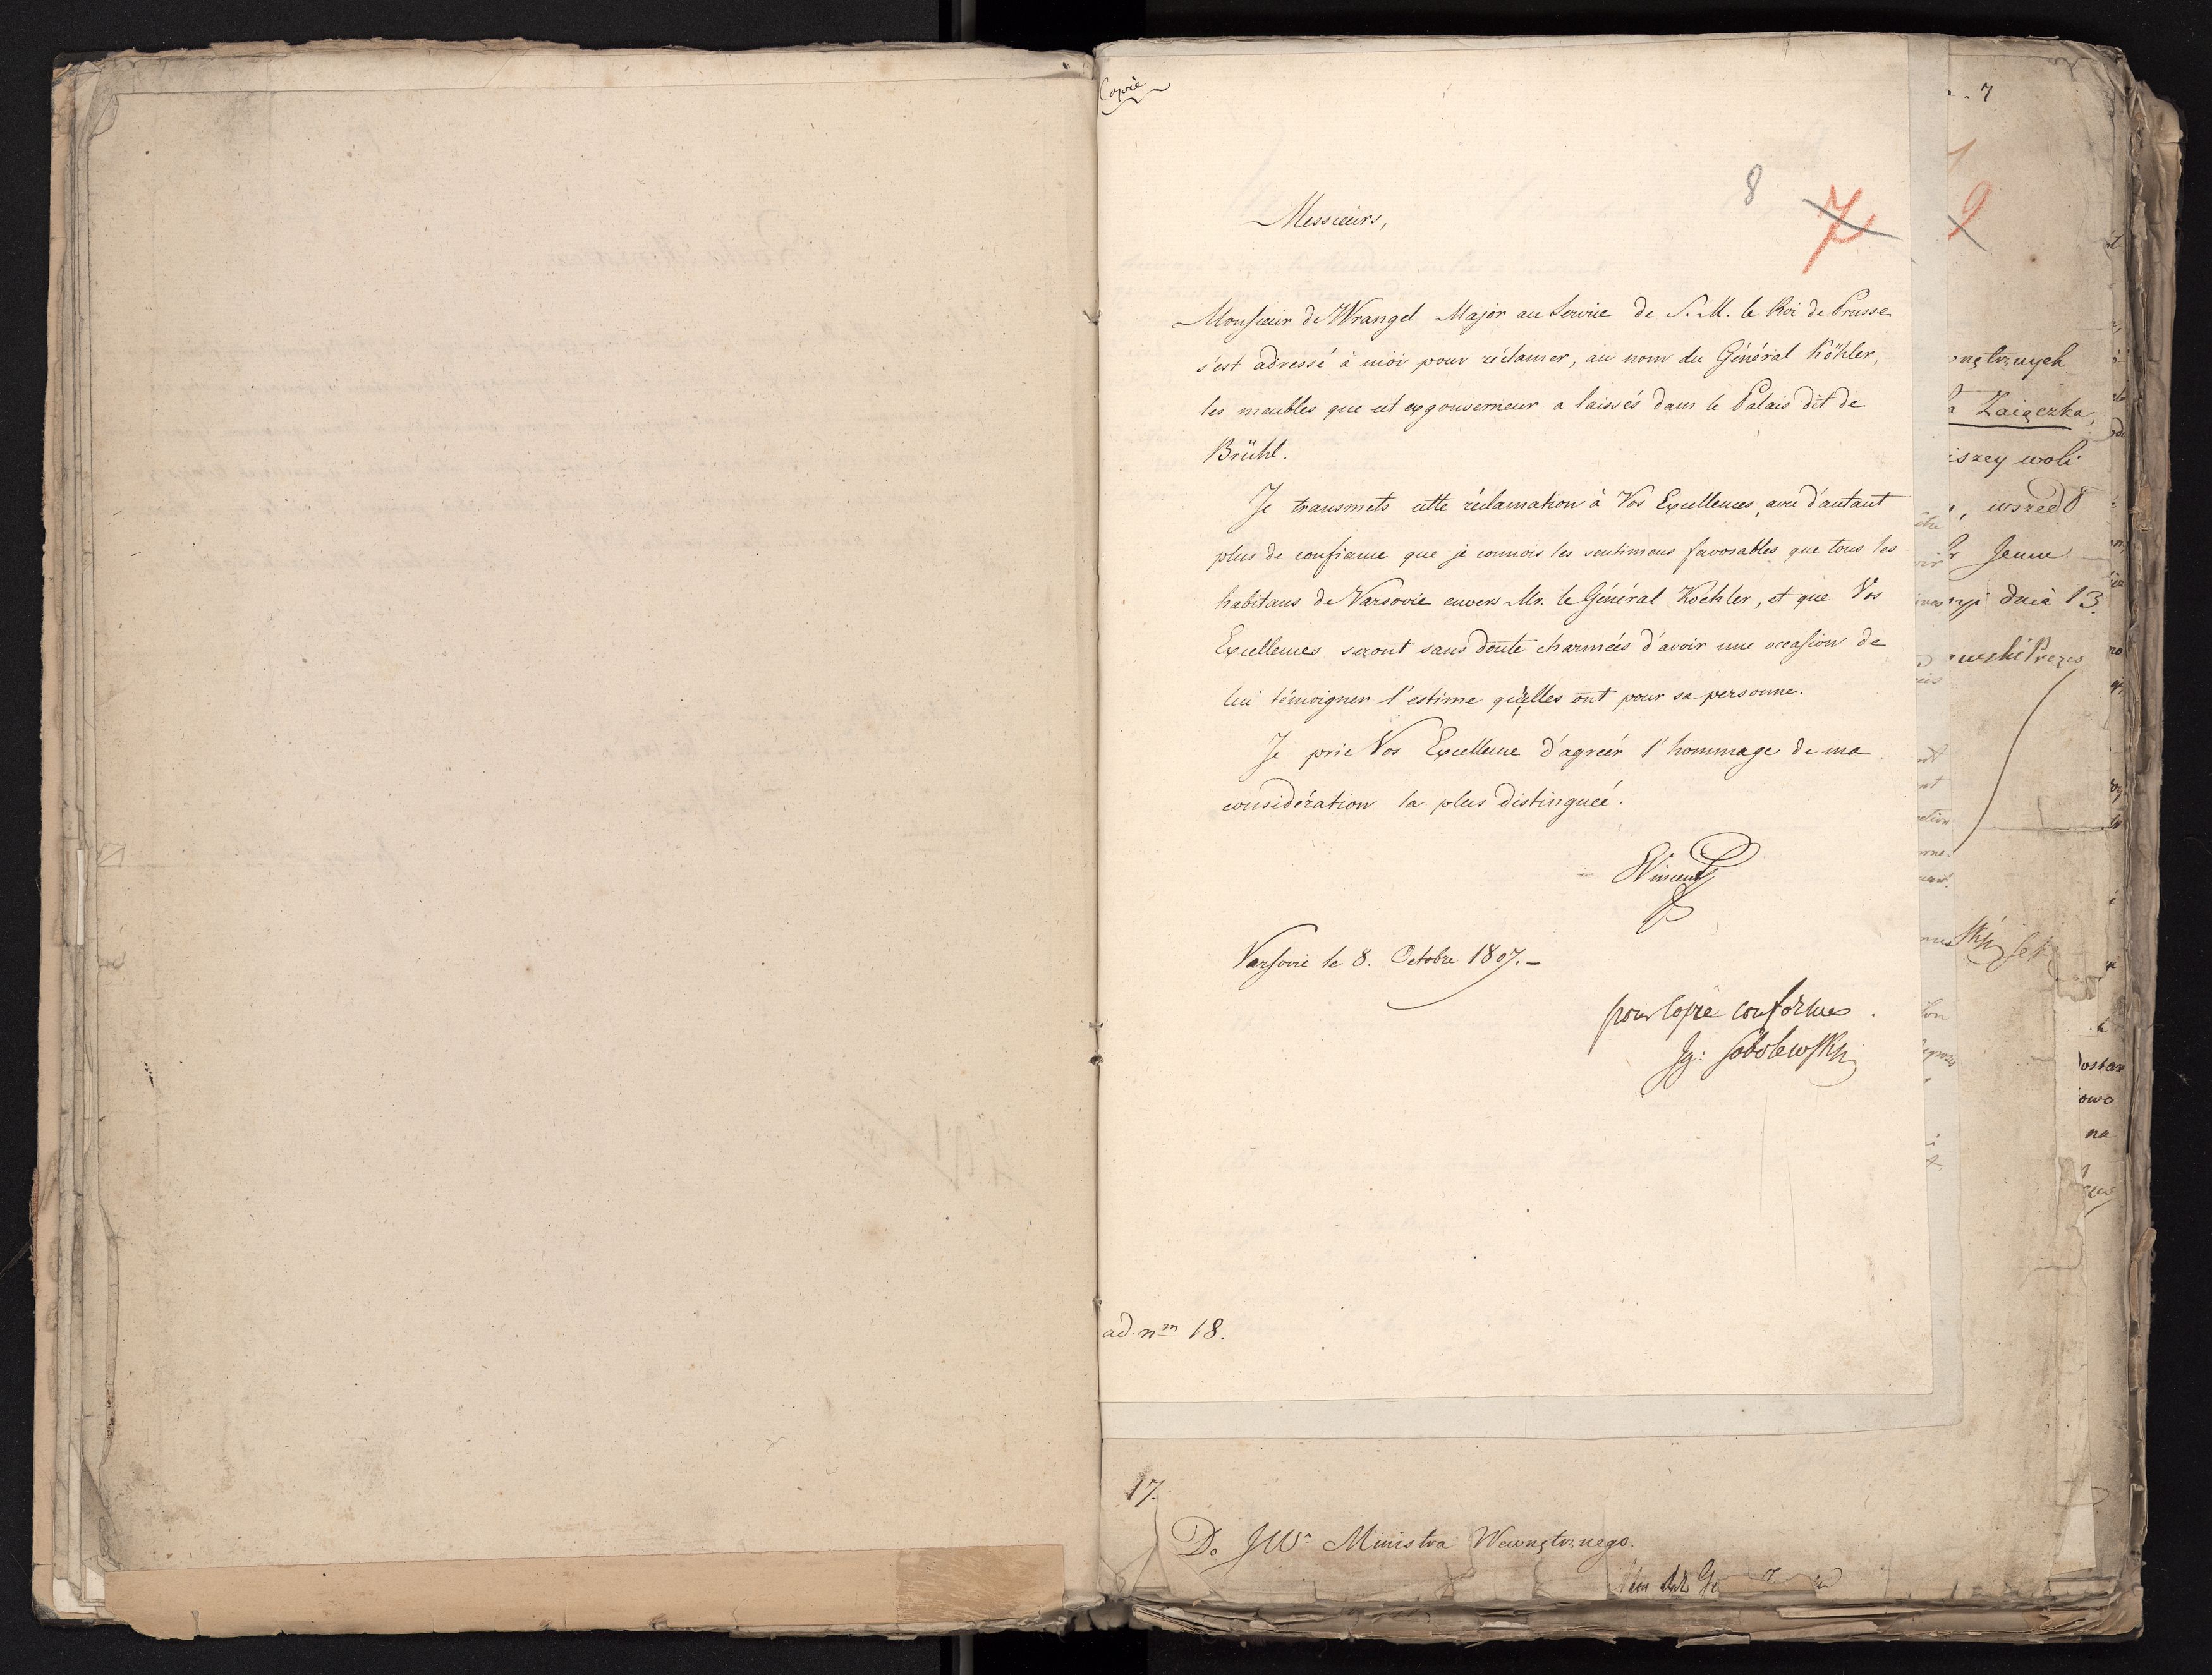 Copie
8
7
Messieurs,
Monsieur de Wrangel Major au Service de S. M. le Roi de Prusse
s'est adressé à moi pour réclamer, au nom du Général Köhler,
les meubles que cet exgouverneur a laissés dans le Palais dit de
Brühl.
Je transmets cette réclamation à Vos Excellences, avec d'autant
plus de confiance que je connois les sentimens favorables que tous les
habitans de Varsovie envers Mr. le Général Koehler, et que Vos
Excellences seront sans doute charmées d'avoir une occasion de
lui témoigner l'estime qu'elles ont pour sa personne.
Je prie Vos Excellence d'agréer l'hommage de ma
considération la plus distinguée.
Vincent
Varsovie le 8. Octobre 1807.-
pour Copie conforme
Ig: Sobolewski
ad nm 18.
17.
Do JW. Ministra Wewnętrznego.
7
9
Zaiączka,
woli
, wszedł
Jenu
dnia 13.
Prezes